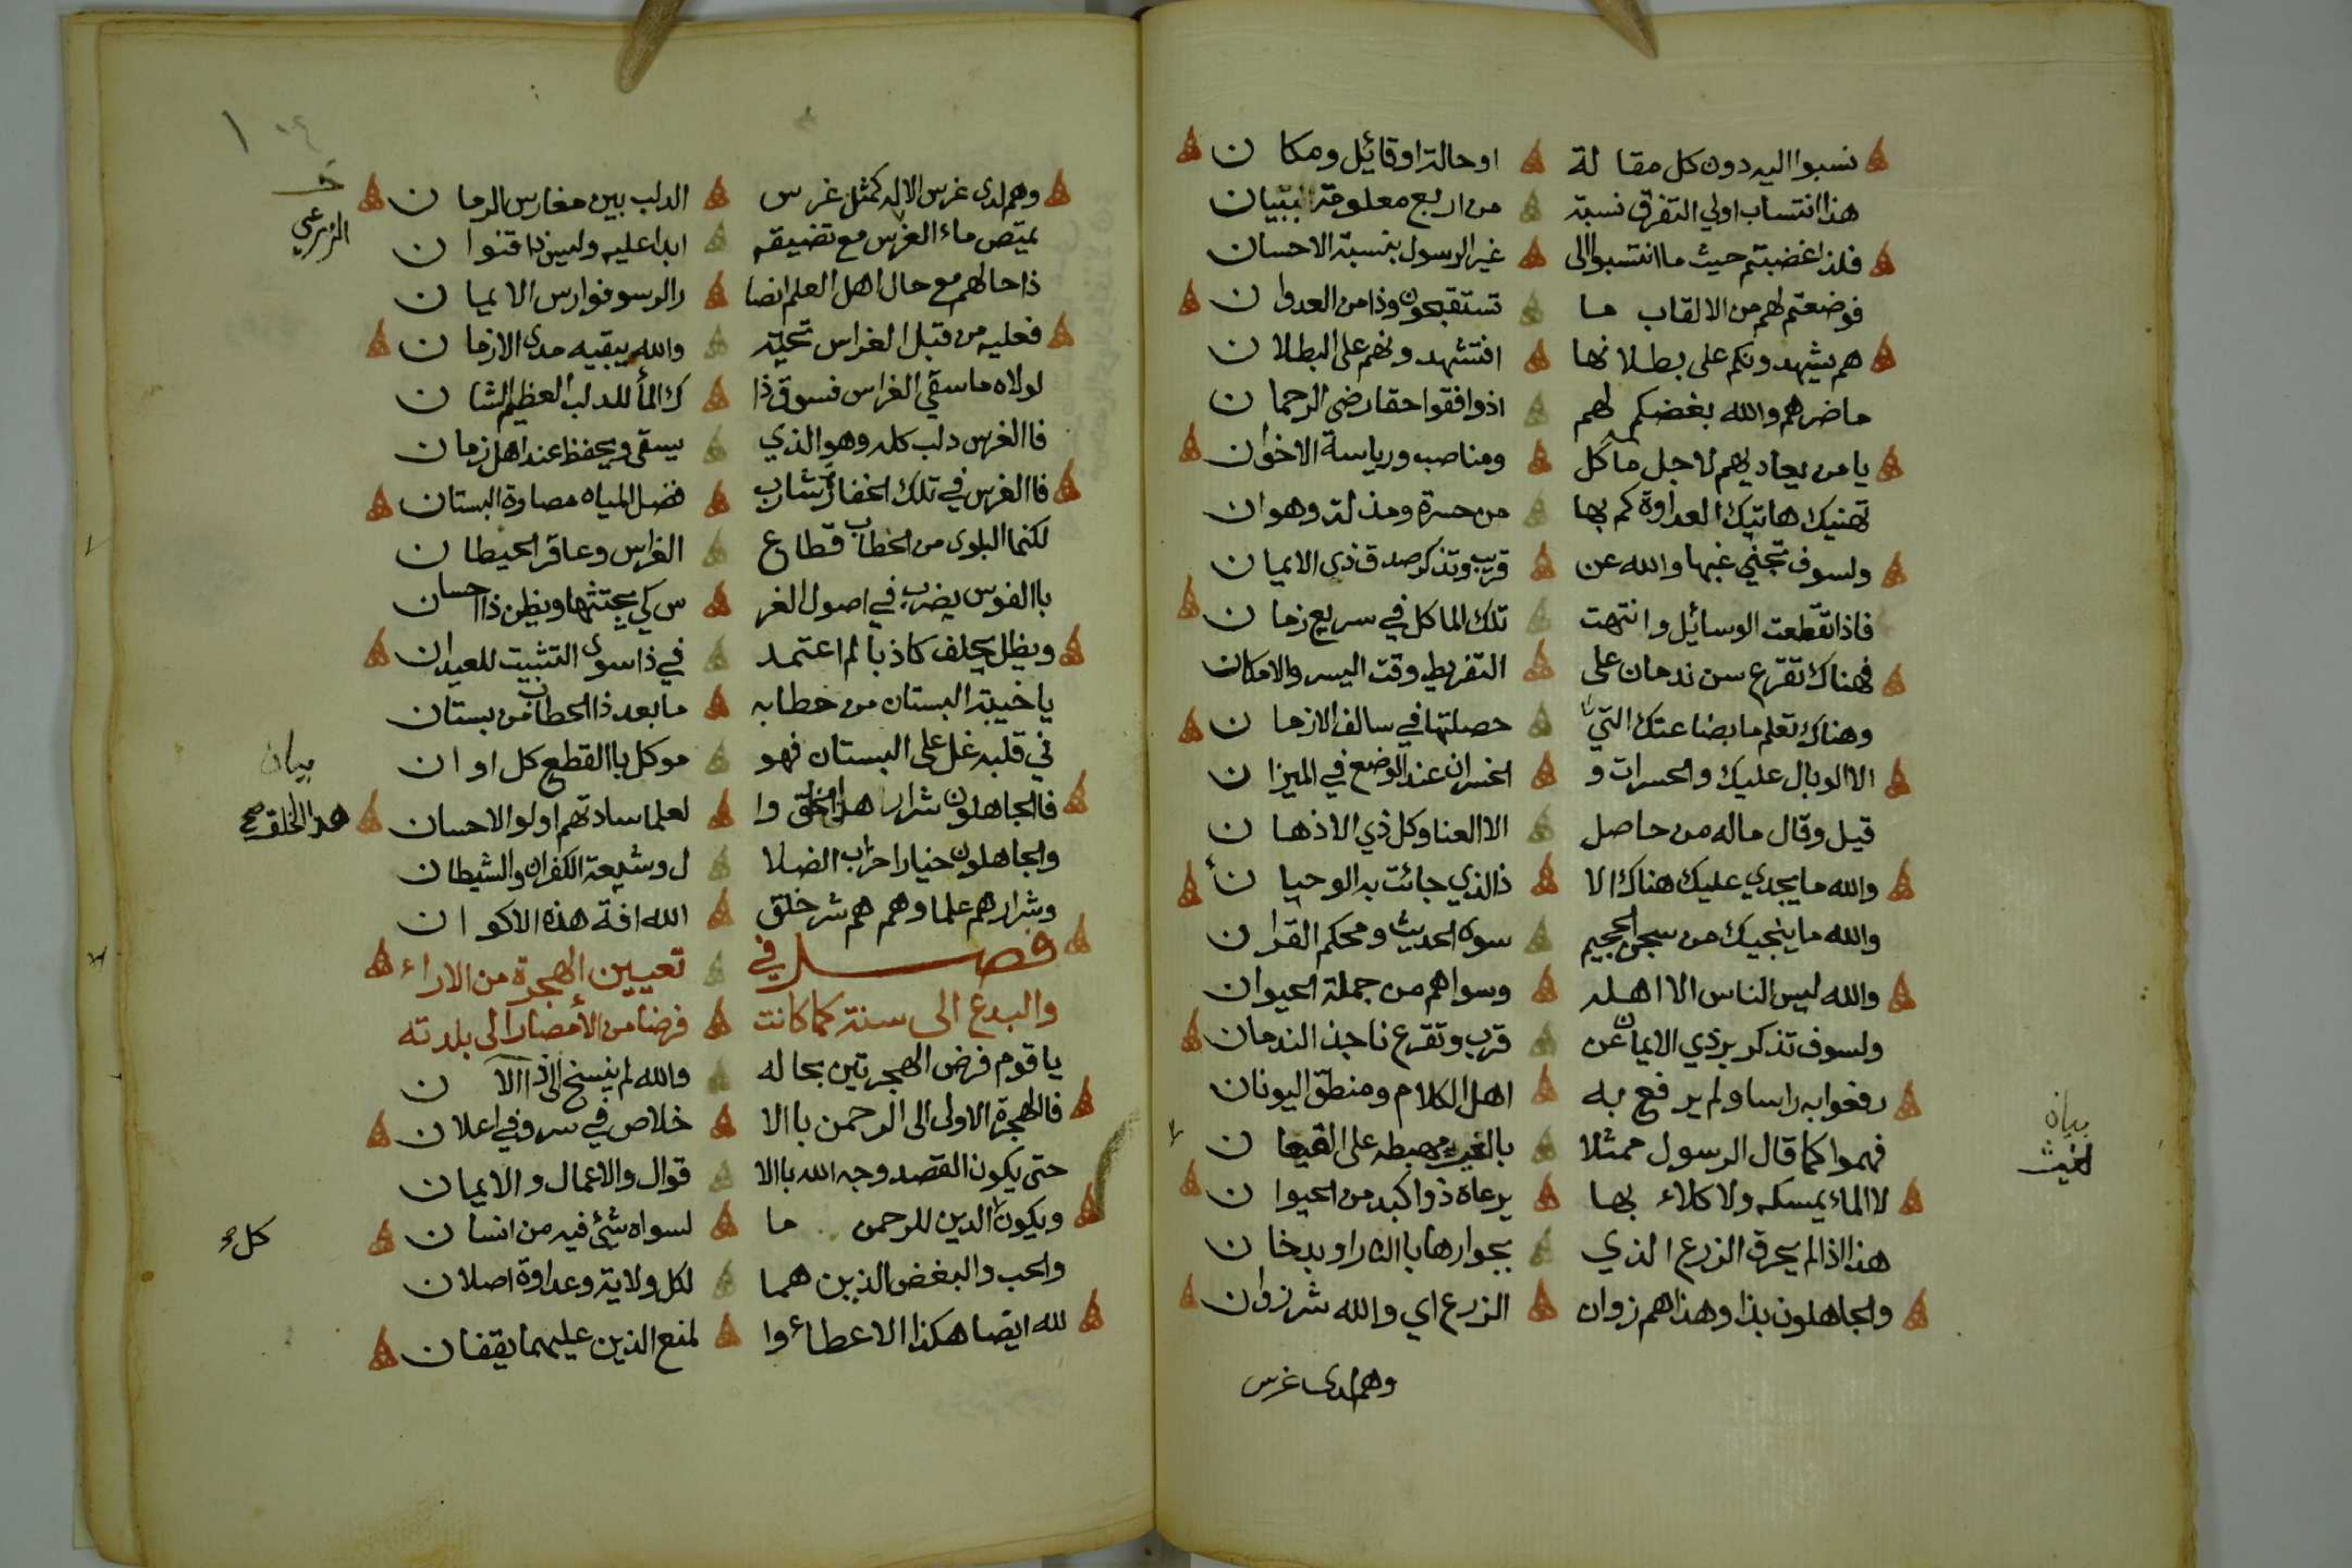 نسبوا اليه دون كل مقالة اوحالة اوقائل ومكان
هذا انتساب اولي التفرق نسبة من اربع معلومة التبيان
فلذا غضبتم حيث ما انتسبوا الى غير الرسول بنسبة الاحسان
فوضعتم لهم من الالقاب ما تستقبحون وذا من العدوان
هم يشهدونكم على بطلانها افتشهدونهم على البطلان
ماضرهم والله بغضكم لهم اذ وافقوا حقا رضى الرحمان
يا من يعاديهم لاجل مآكل ومناصب ورياسة الاخوان
تهنيك هاتيك العداوة كم بها من حسرة ومذلة وهوان
ولسوف تجني غبها والله عن قرب وتذكر صدق ذي الايمان
فاذا تقطعت الوسائل وانتهت تلك الماكل في سريع زمان
فهناك تقرع سن ندمان على التفريط وقت اليسر والامكان
وهناك تعلم ما بضاعتك التي حصلتها في سالف الازمان
الا الوبال عليك والحسرات و الخسران عند الوضع في الميزان
قيل وقال ماله من حاصل الا العنا وكل ذي الاذهان
والله ما يجدي عليك هناك الا ذا الذي جائت به الوحيان
والله ما ينجيك من سجن الجحيم سوى الحديث ومحكم القران
والله ليس الناس الا اهله وسواهم من جملة الحيوان
ولسوف تذكر بر ذي الايمان عن قرب وتقرع ناجذ الندمان
رفعوا به راسا ولم يرفع به اهل الكلام ومنطق اليونان
فهموا كما قال الرسول ممثلا بالغيث مهبطه على القيعان
لا الماء يمسكه ولا كلاء بها يرعاة ذوا كبد من الحيوان
هذا اذا لم يحرق الزرع الذي بجوارها باالنار او بدخان
والجاهلون بذا وهذا هم زوان الزرع اي والله شر زوان
بيان
لغيث
وهم لدى غرس
وهم لدى غرس الاله كمثل غرس الدلب بين مغارس الرمان
يمتص ماء الغرس مع تضييقه ابدا عليه وليس ذا قنوان
ذا حالهم مع حال اهل العلم انصا ر الرسو فوارس الايمان
فعليه من قبل الغراس تحية والله يبقيه مدى الازمان
لولاه ما سقي الغراس فسوق ذا ك الماء للدلب العظيم الشان
فاالغرس دلب كله وهو الذي يسقى ويحفظ عند اهل زمان
فاالغرس في تلك الخفارة شارب فضل المياه مصاوة البستان
لكنما البلوى من الحطاب قطاع الغراس وعاقر الحيطان
باالفوس يضرب في اصول الغر س كي يجتثها ويظن ذا احسان
ويظل يحلف كاذبا لم اعتمد في ذا سوى التثبيت للعيدان
يا خيبة البستان من حطابه ما بعد ذا الحطاب من بستان
في قلبه غل على البستان فهو موكل باالقطع كل اوان
فالجاهلون شرار اهل الحق وا لعلما سادتهم اولو الاحسان
والجاهلون خيار احزاب الضلا ل وشيعة الكفران والشيطان
وشرارهم علما وهم هم شر خلق الله افة هذه الاكوان
فصل في تعيين الهجرة من الاراء
والبدع الى سنته كما كانت فرضا من الأمصار الى بلدته
يا قوم فرض الهجرتين بحاله والله لم ينسخ الى ذا الآن
فالهجرة الاولى الى الرحمن باالا خلاص في سر وفي اعلان
حتى يكون القصد وجه الله باالا قوال والاعمال والايمان
ويكون الدين للرحمن ما لسواه شئ فيه من انسان
والحب والبغض الذين هما لكل ولاية وعداوة اصلان
لله ايضا هكذا الاعطاء وا لمنع الذين عليهما يقفان
بيان
كل